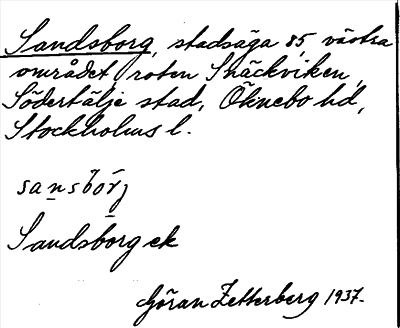 Sandsborg, stadsäga 85, västra
området, roten Snäckviken,
Södertälje stad, Öknebo hd,
Stockholms l.
sansbörj
Sandsborg ek
Göran Zetterberg 1937.